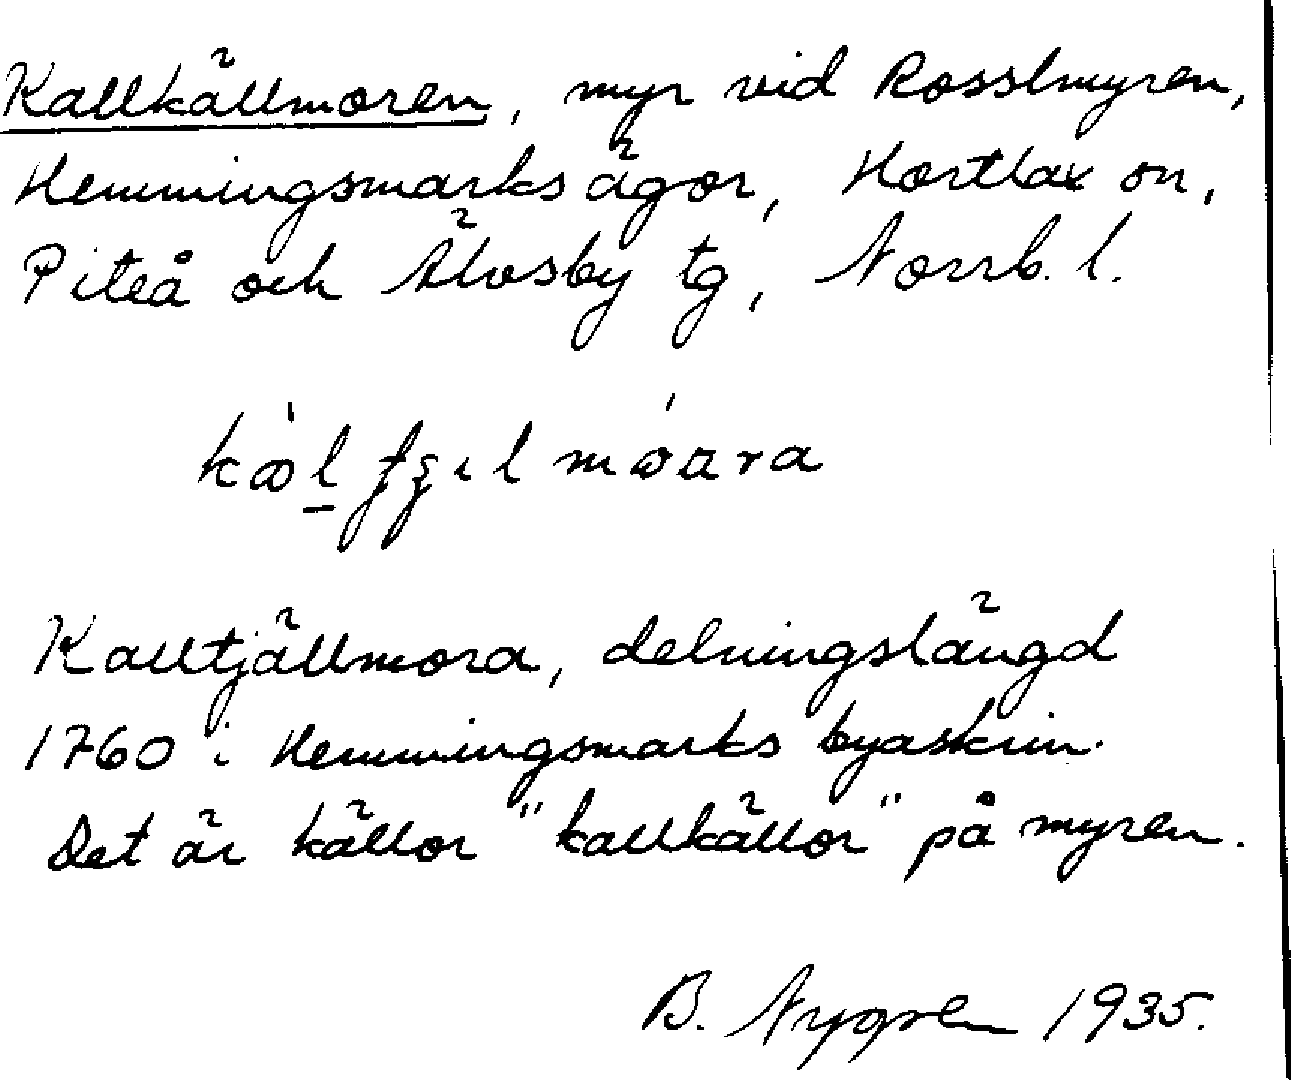 Kallkällmoren, myr vid Rosslmyren,
Hemmingsmarks ägor, Hortlax sn,
Piteå och Älvsby tg, Norrb. l.
Kalltjällmora, delningslängd
1760 i Hemmingsmarks byaskrin.
Det är källor "kallkällor" på myren.
B. Nygren 1935.